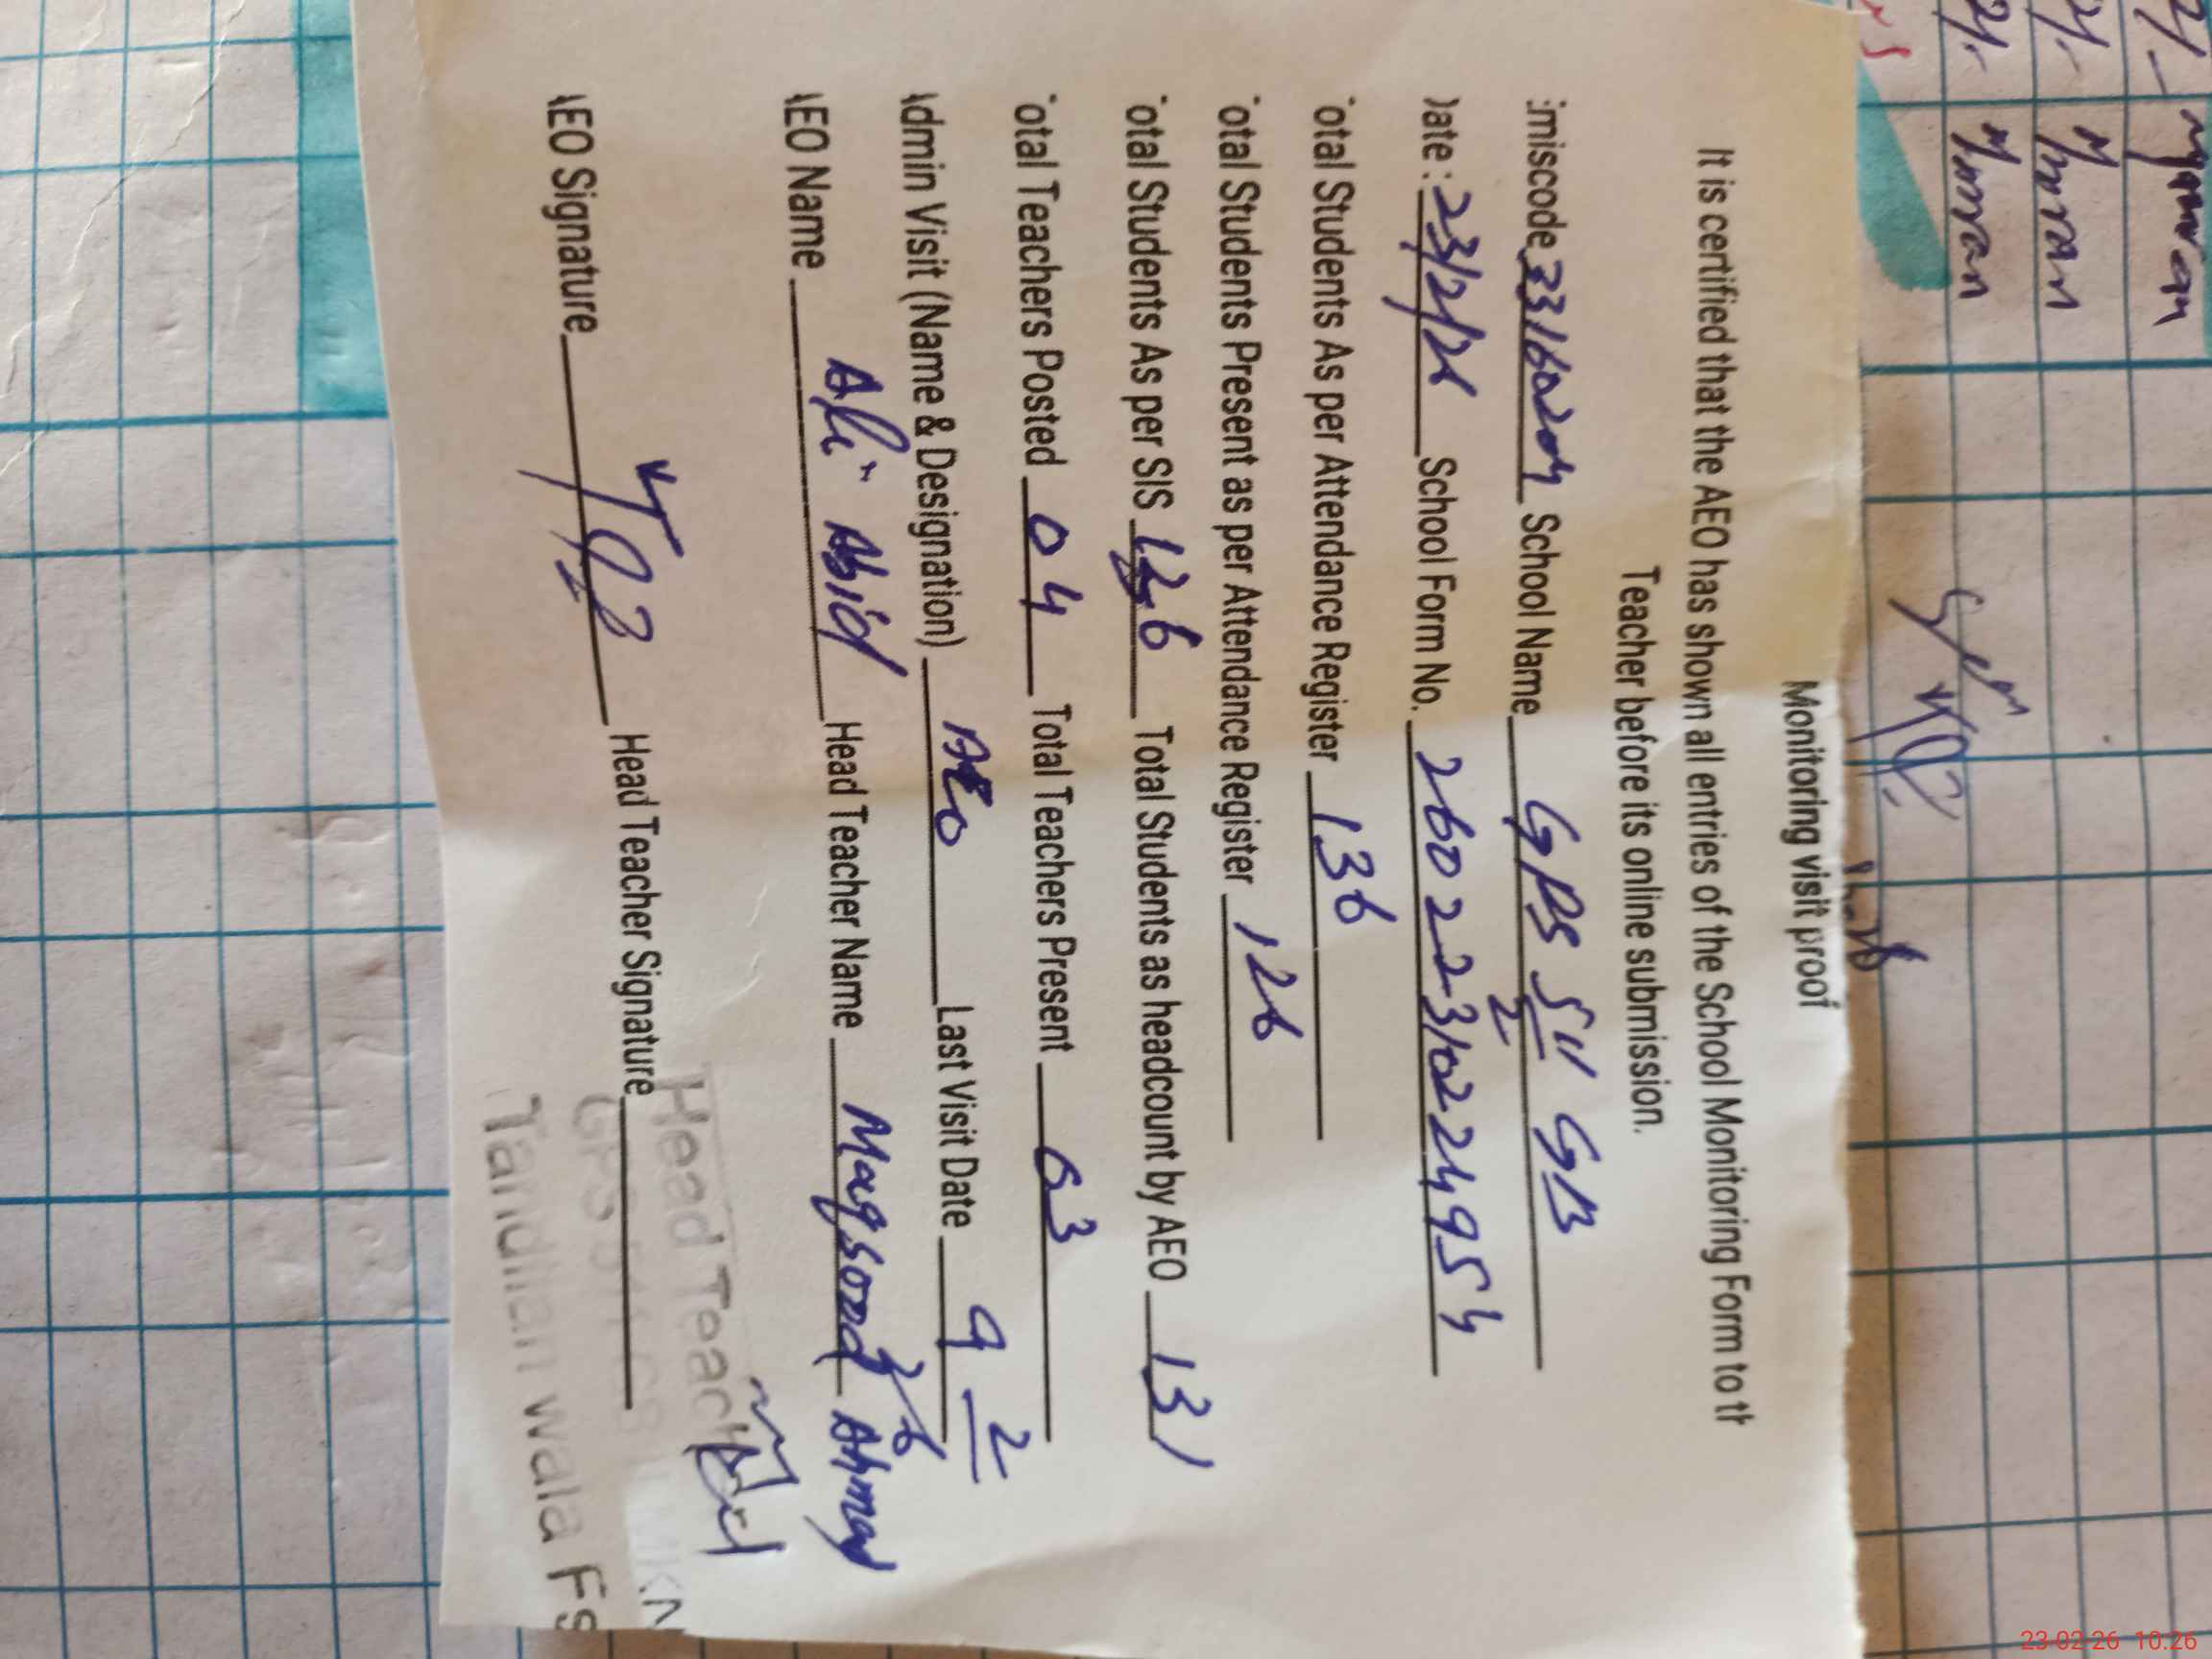 Monitoring visit proof
It is certified that the AEO has shown all entries of the School Monitoring Form to th
Teacher before its online submission.
miscode 33160204 School Name GPS 511 GB
2
Date : 23/2/26 School Form No. 26022310224954
otal Students As per Attendance Register 136
otal Students Present as per Attendance Register 126
otal Students As per SIS 136 Total Students as headcount by AEO 131
otal Teachers Posted 04 Total Teachers Present 03
dmin Visit (Name & Designation) AEO Last Visit Date 9/2/26
EO Name Ali Abid Head Teacher Name Maqsood Ahmad
EO Signature Head Teacher Signature
Head Teacher
GPS 511 GB
Tandlian wala Fs
Imran
Imran
23-02-26 10:26